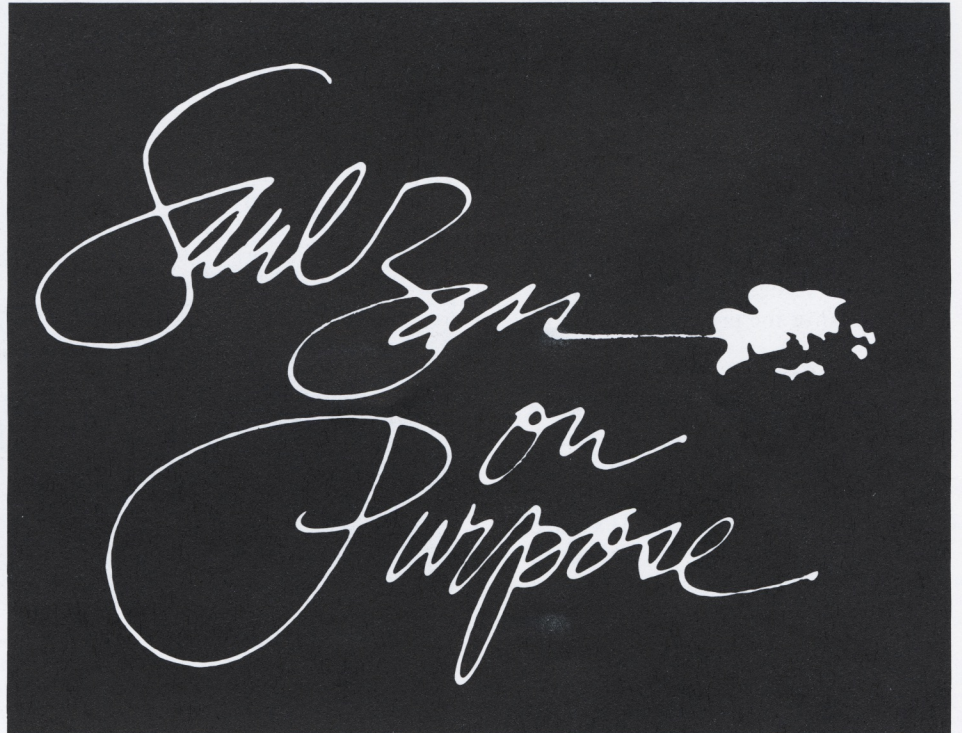 Saul Bass
on
Purpose